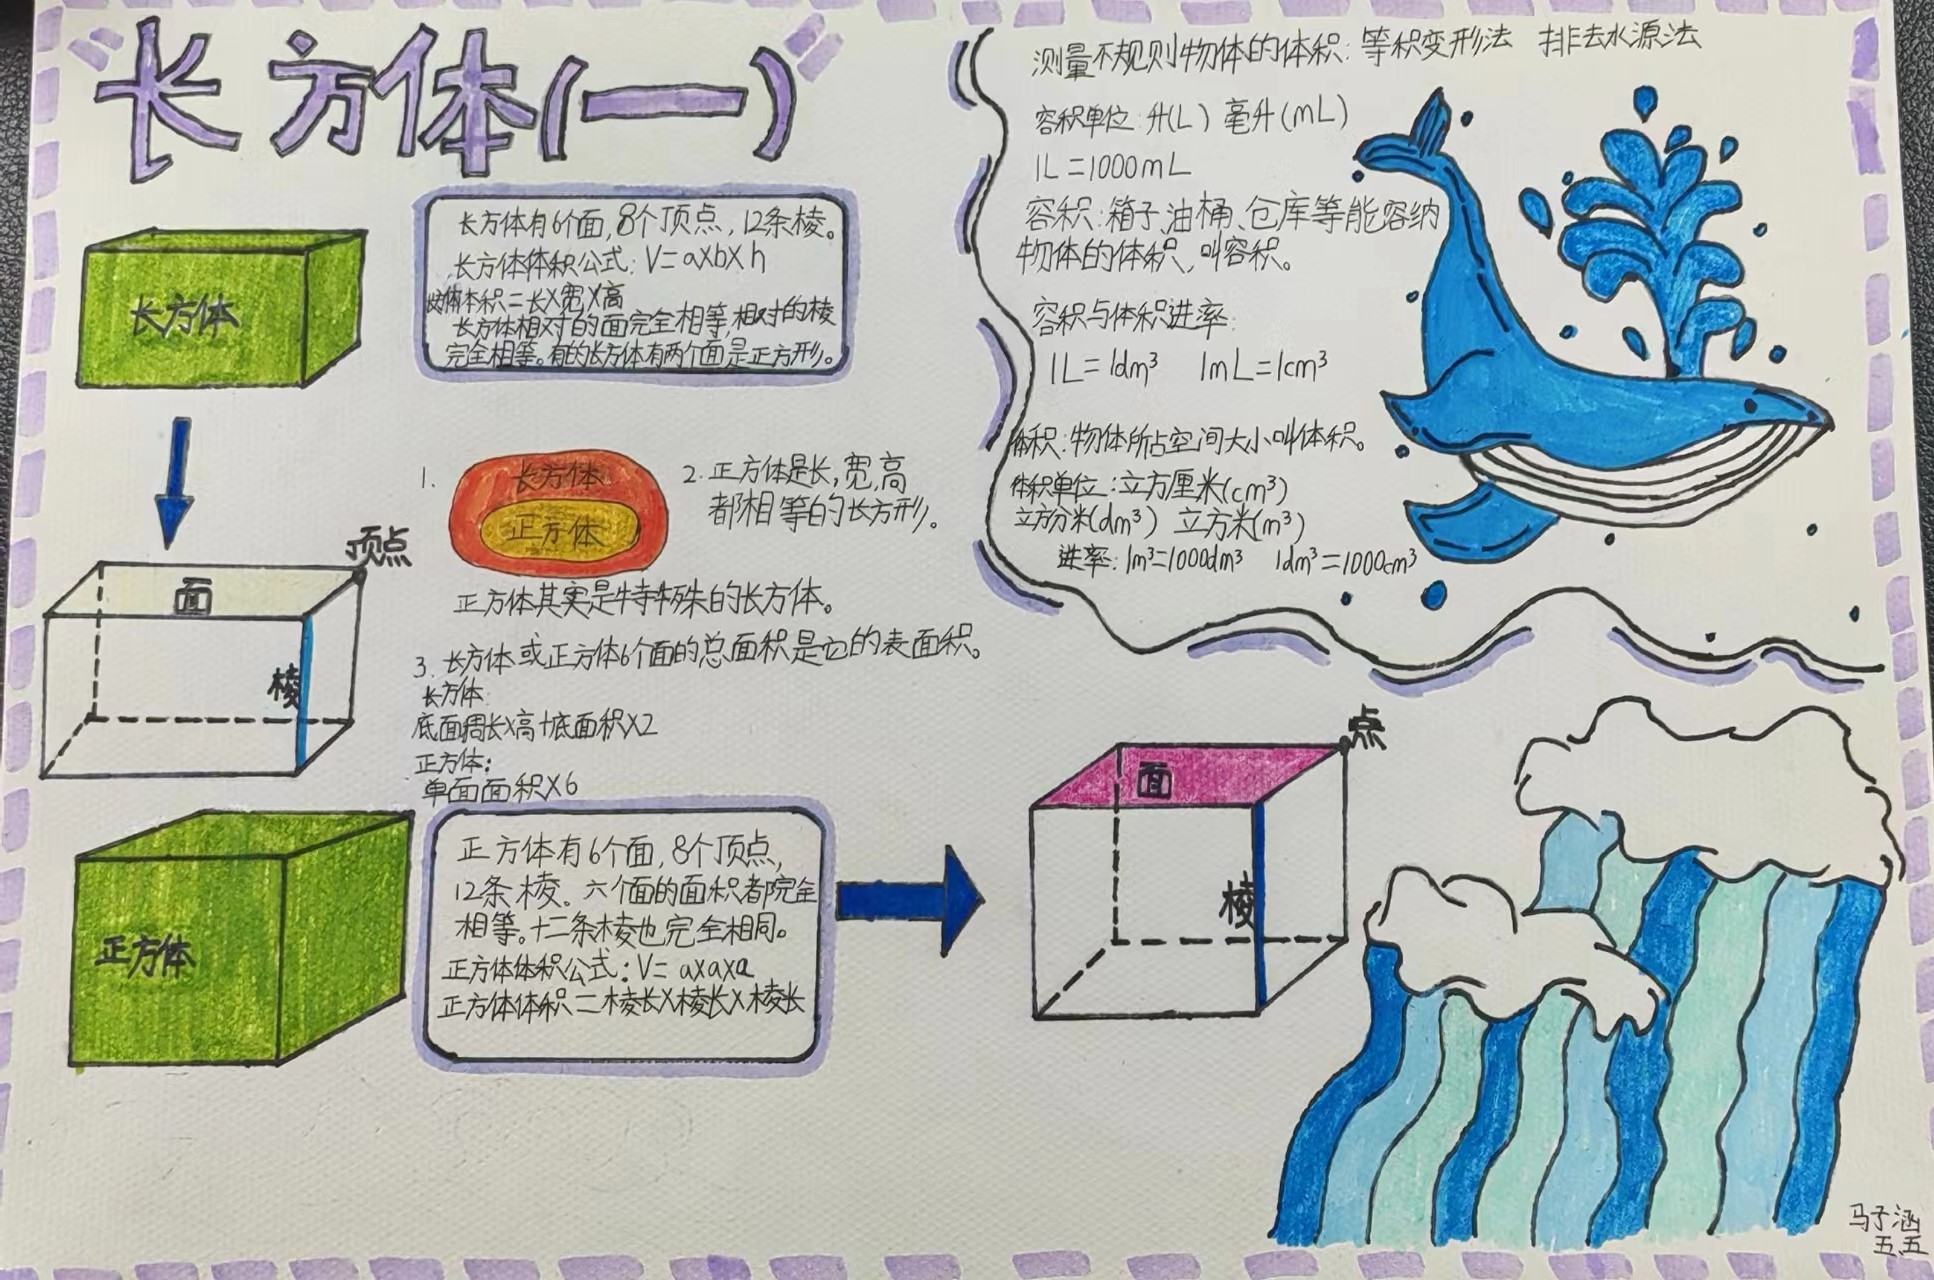 “长方体(一)”
长方体
长方体有6个面,8个顶点,12条棱。
长方体体积公式:V=a×b×h
体积=长×宽×高
长方体相对的面完全相等,相对的棱
完全相等。有的长方体有两个面是正方形。
顶点
面
棱
1.
长方体
正方体
正方体其实是特殊的长方体。
2.正方体是长,宽,高
都相等的长方形。
3.长方体或正方体6个面的总面积是它的表面积。
长方体:
底面周长×高+底面积×2
正方体:
单面面积×6
正方体
正方体有6个面,8个顶点,
12条棱。六个面的面积都完全
相等。十二条棱也完全相同。
正方体体积公式:V=a×a×a
正方体体积=棱长×棱长×棱长
点
面
棱
测量不规则物体的体积:等积变形法 排去水源法
容积单位:升(L) 毫升(mL)
1L=1000mL
容积:箱子,油桶、仓库等能容纳
物体的体积,叫容积。
容积与体积进率:
1L=1dm³ 1mL=1cm³
体积:物体所占空间大小叫体积。
体积单位:立方厘米(cm³)
立方分米(dm³) 立方米(m³)
进率:1m³=1000dm³ 1dm³=1000cm³
马子涵
五.五